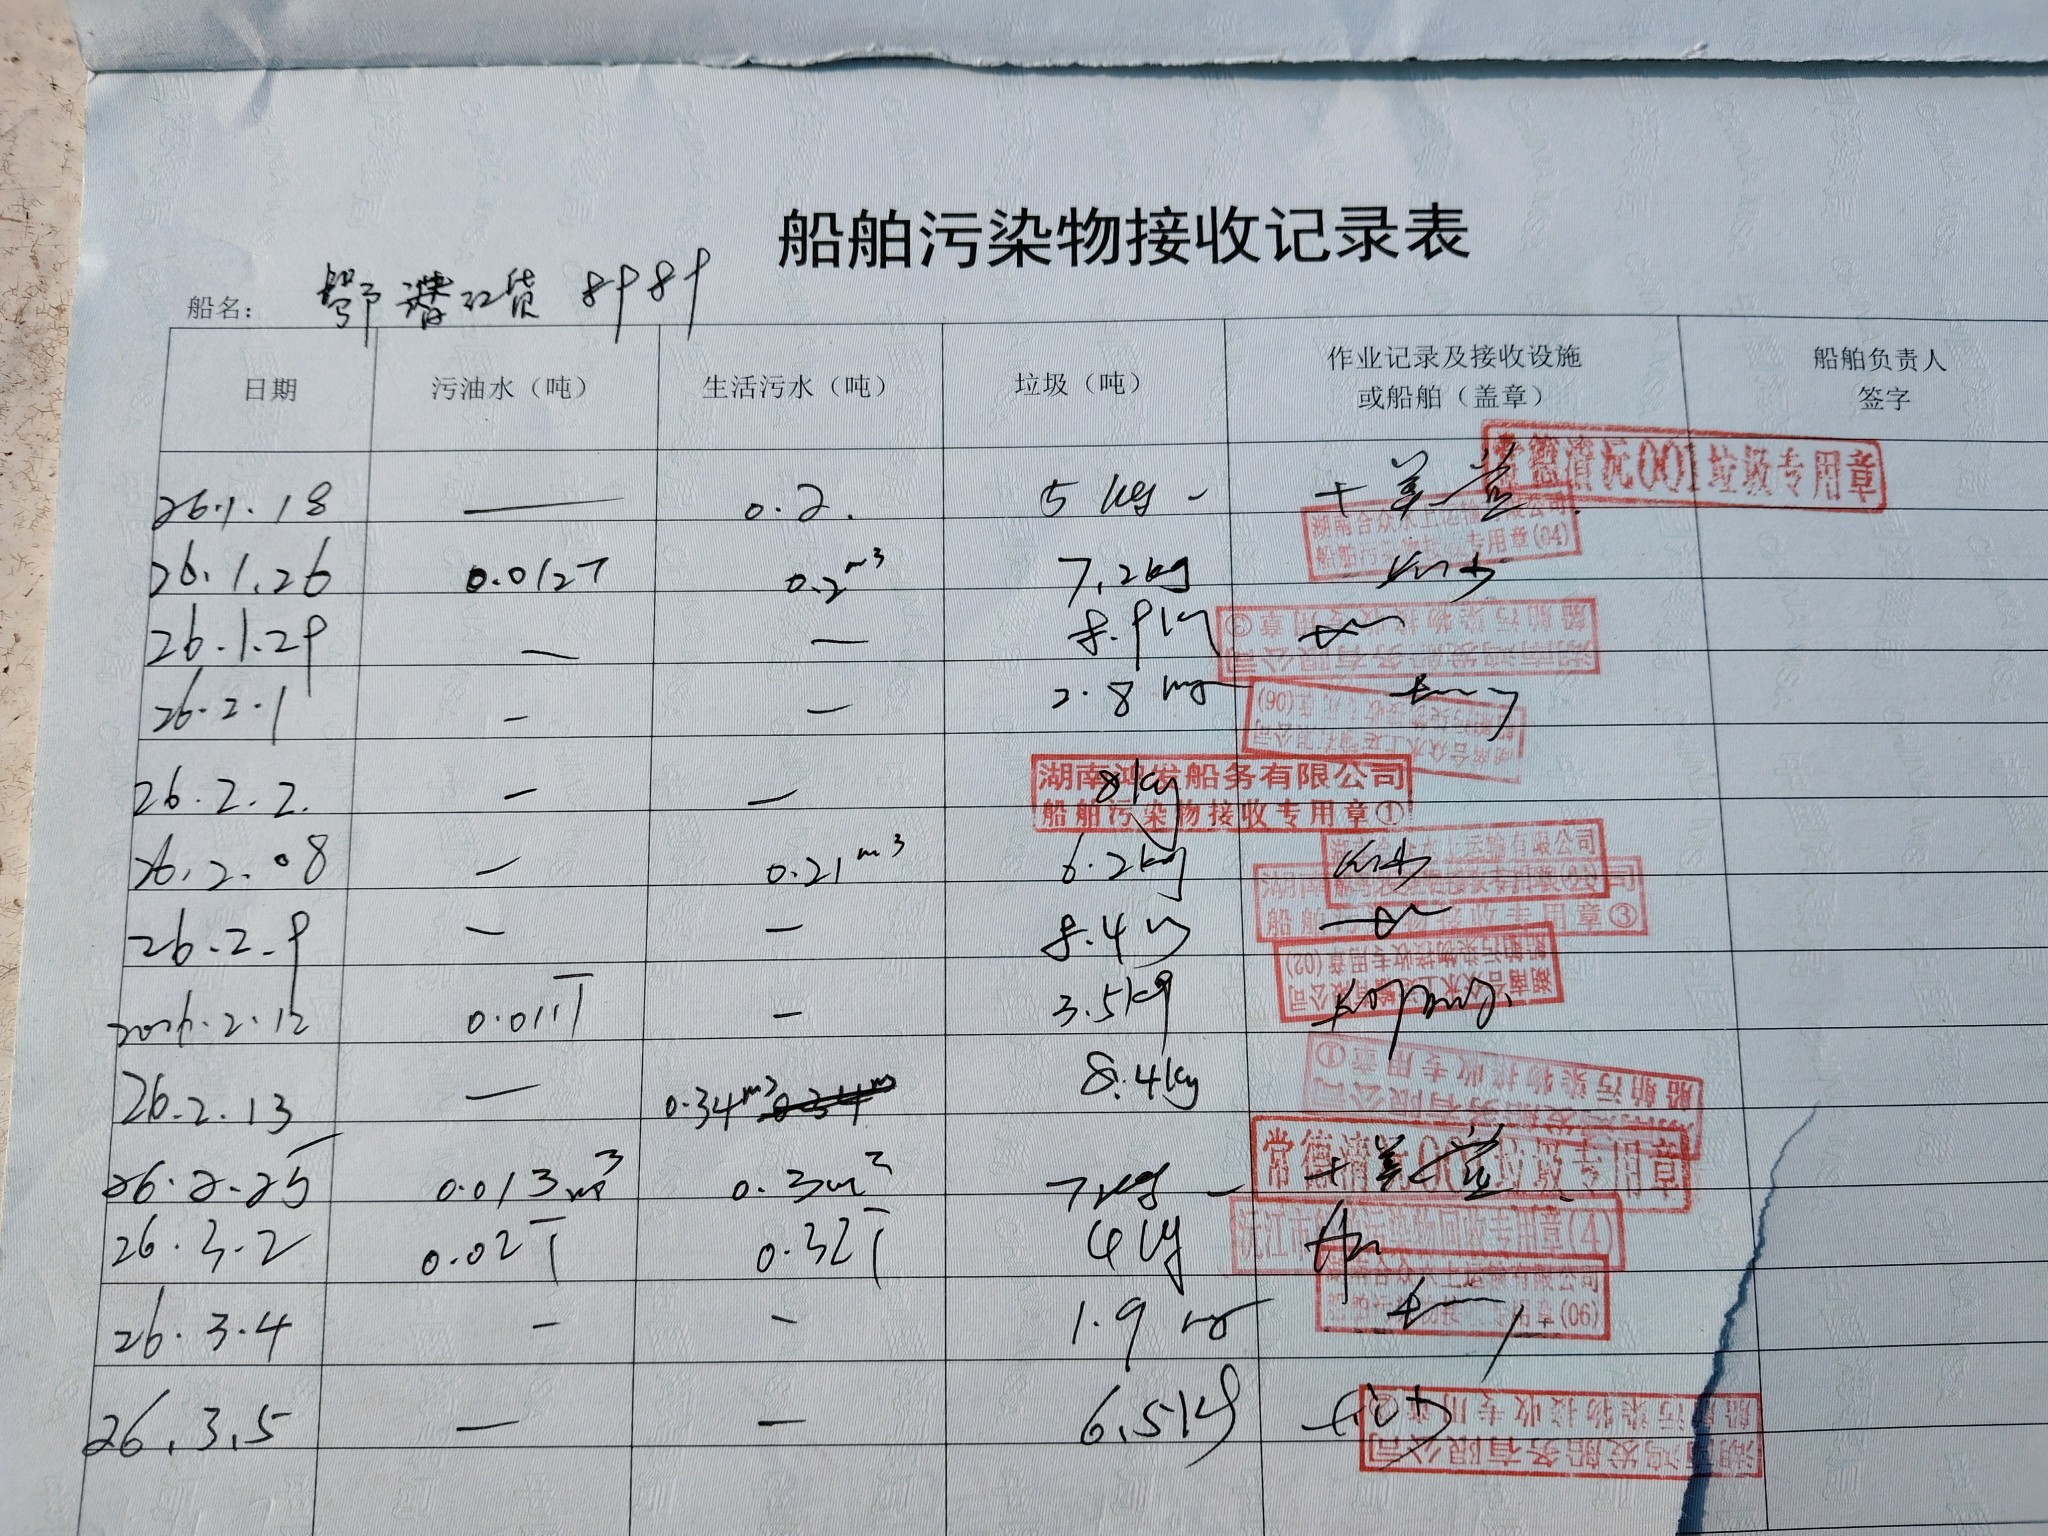 船舶污染物接收记录表
船名： 鄂潜江货 8989
日期 污油水（吨） 生活污水（吨） 垃圾（吨） 作业记录及接收设施或船舶（盖章） 船舶负责人签字
26.1.18 — 0.2. 5 kg - 常德清沅001垃圾专用章
26.1.26 0.012T 0.2m³ 7.2kg 湖南合众水上运输有限公司 船舶污染物接收专用章(04)
26.1.29 — — 8.9kg 船舶污染物接收专用章③
26.2.1 - — 2.8 kg 湖南合众水上运输有限公司 船舶污染物接收专用章(06)
26.2.2. — — 8kg 湖南鸿发船务有限公司 船舶污染物接收专用章①
26.2.08 — 0.21m³ 6.2kg
26.2.9 — — 8.4 船舶污染物接收专用章③
2026.2.12 0.011T — 3.5kg 湖南合众水上运输有限公司 船舶污染物接收专用章(02)
26.2.13 — 0.34m³ 8.4kg 船舶污染物接收专用章①
26.2.25 0.013m³ 0.3m³ 7kg - 常德清沅001垃圾专用章
26.3.2 0.02T 0.32T 4kg 沅江市船舶污染物回收专用章(4)
26.3.4 - - 1.9 湖南合众水上运输有限公司 船舶污染物接收专用章(06)
26.3.5 — — 6.5kg 湖南鸿发船务有限公司 船舶污染物接收专用章②